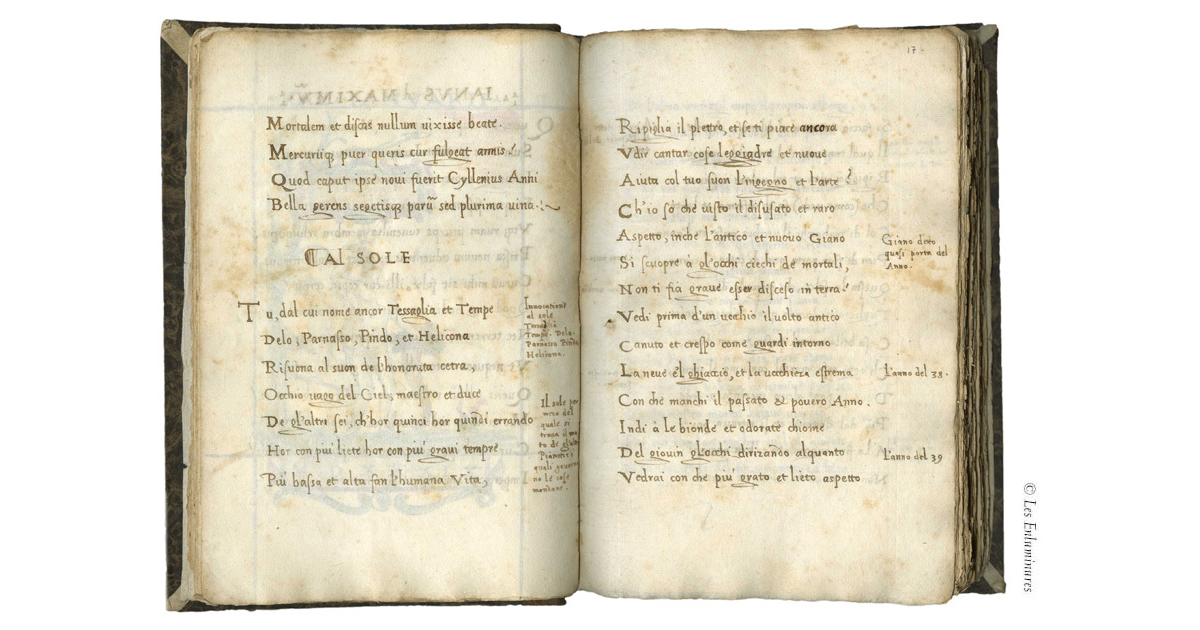 Mortalem et discas nullum uixisse beate.
Mercuriiq; puer queris cur fulgeat annis?
Quod caput ipse noui fuerit Cyllenius Anni
Bella gerens sectisq; parū sed plurima uina.
AL SOLE
Tu, dal cui nome ancor Tessaglia et Tempe
Delo, Parnasso, Pindo, et Helicona
Risuona al suon de l'honorata cetra,
Occhio uago del Ciel, maestro et duce
De gl'altri sei, ch'hor quinci hor quindi errando
Hor con piu' liete hor con piu' graui tempre
Piu bassa et alta fan l'humana Vita,
Inuocatione
al sole
Tempe. Delo.
Parnasso Pindo
Helicona.
Il sole per
mezo del
quale si
to de gl'altri
Pianeti i
quali gouerna
no le cose
mondane.
17
Ripiglia il plettro, et se ti piace ancora
Vdir cantar cose leggiadre et nuoue
Aiuta col tuo suon l'ingegno et l'arte
Ch'io so che uisto il disusato et raro
Aspetto, inche l'antico et nuouo Giano
Si scuopre à gl'occhi ciechi de mortali,
Non ti fia graue esser disceso in terra.
Vedi prima d'un uecchio il uolto antico
Canuto et crespo come guardi intorno
La neue e'l ghiaccio, et la uecchieza estrema
Con che manchi il passato & pouero Anno.
Indi à le bionde et odorate chiome
Del giouin gl'occhi dirizando alquanto
Vedrai con che piu' grato et lieto aspetto
Giano detto
quasi porta del
Anno.
L'anno del 38.
L'anno del 39
© Les Enluminures